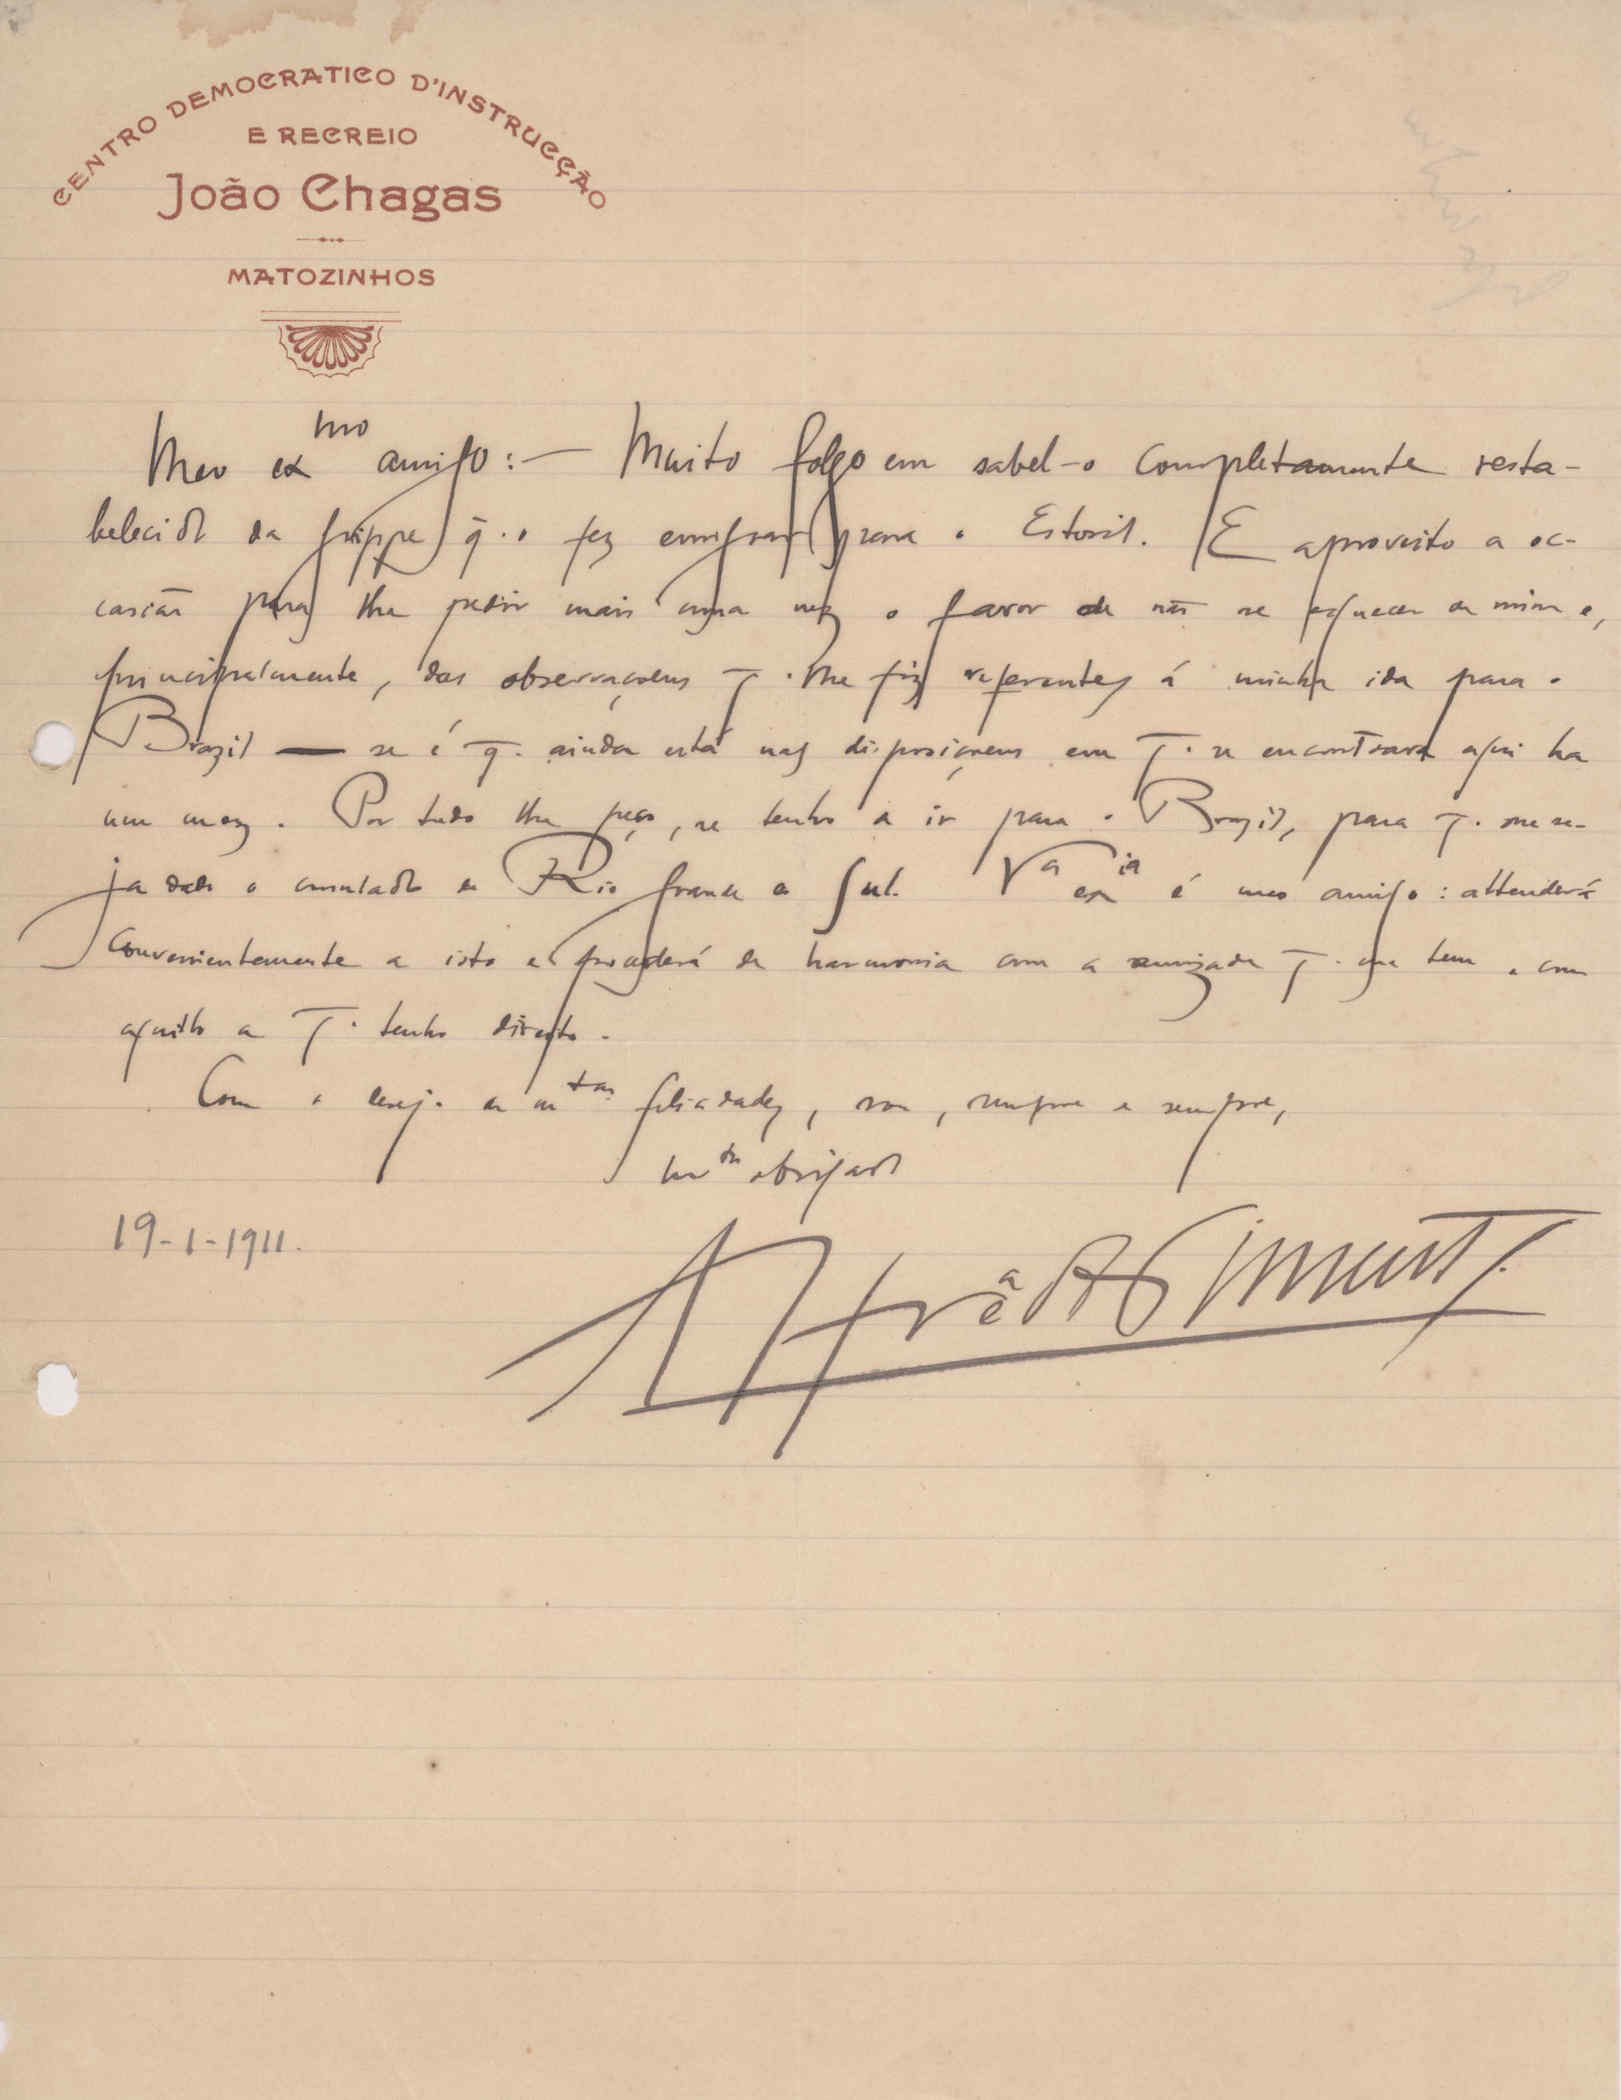 CENTRO DEMOCRATICO D'INSTRUCÇÃO
E RECREIO
João Chagas
MATOZINHOS
Meu exmo amigo: — Muito folgo em sabel-o completamente resta-
belecido da grippe q. o fez emigrar para o Estoril. E aproveito a oc-
casião para lhe pedir mais uma vez o favor de não se esquecer de mim e,
principalmente, das observaçoens q. lhe fiz referentes á minha ida para o
Brazil — se é q. ainda está nas disposiçoens em q. se encontrava aqui ha
um mez. Por tudo lhe peço, se tenho a ir para o Brazil, para q. me se-
ja dado o consulado do Rio Grande do Sul. Va exia é meu amigo: attenderá
convenientemente a isto e procederá de harmonia com a amizade q. me tem e com
aquillo a q. tenho direito.
Com o desejo de mtas felicidades, sou, sempre e sempre,
mto obrigado
19-1-1911.